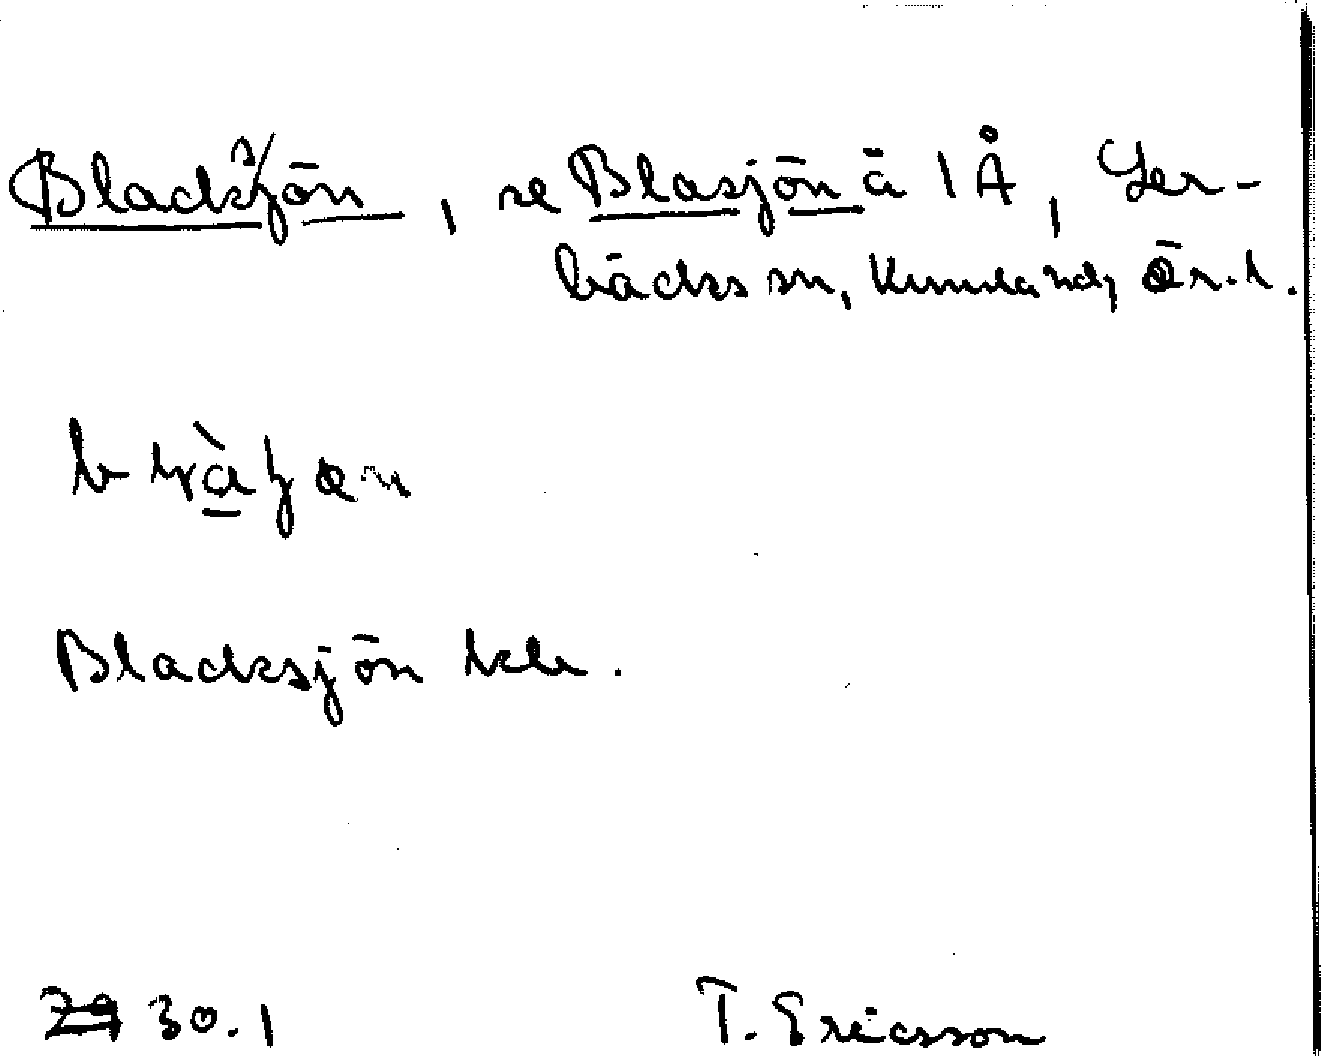 Blacksjön, se Blasjön ä l Å, Ler-
bäcks sn, Kumla hd, Ör. l.
Blacksjön kka.
30.1 T. Ericsson